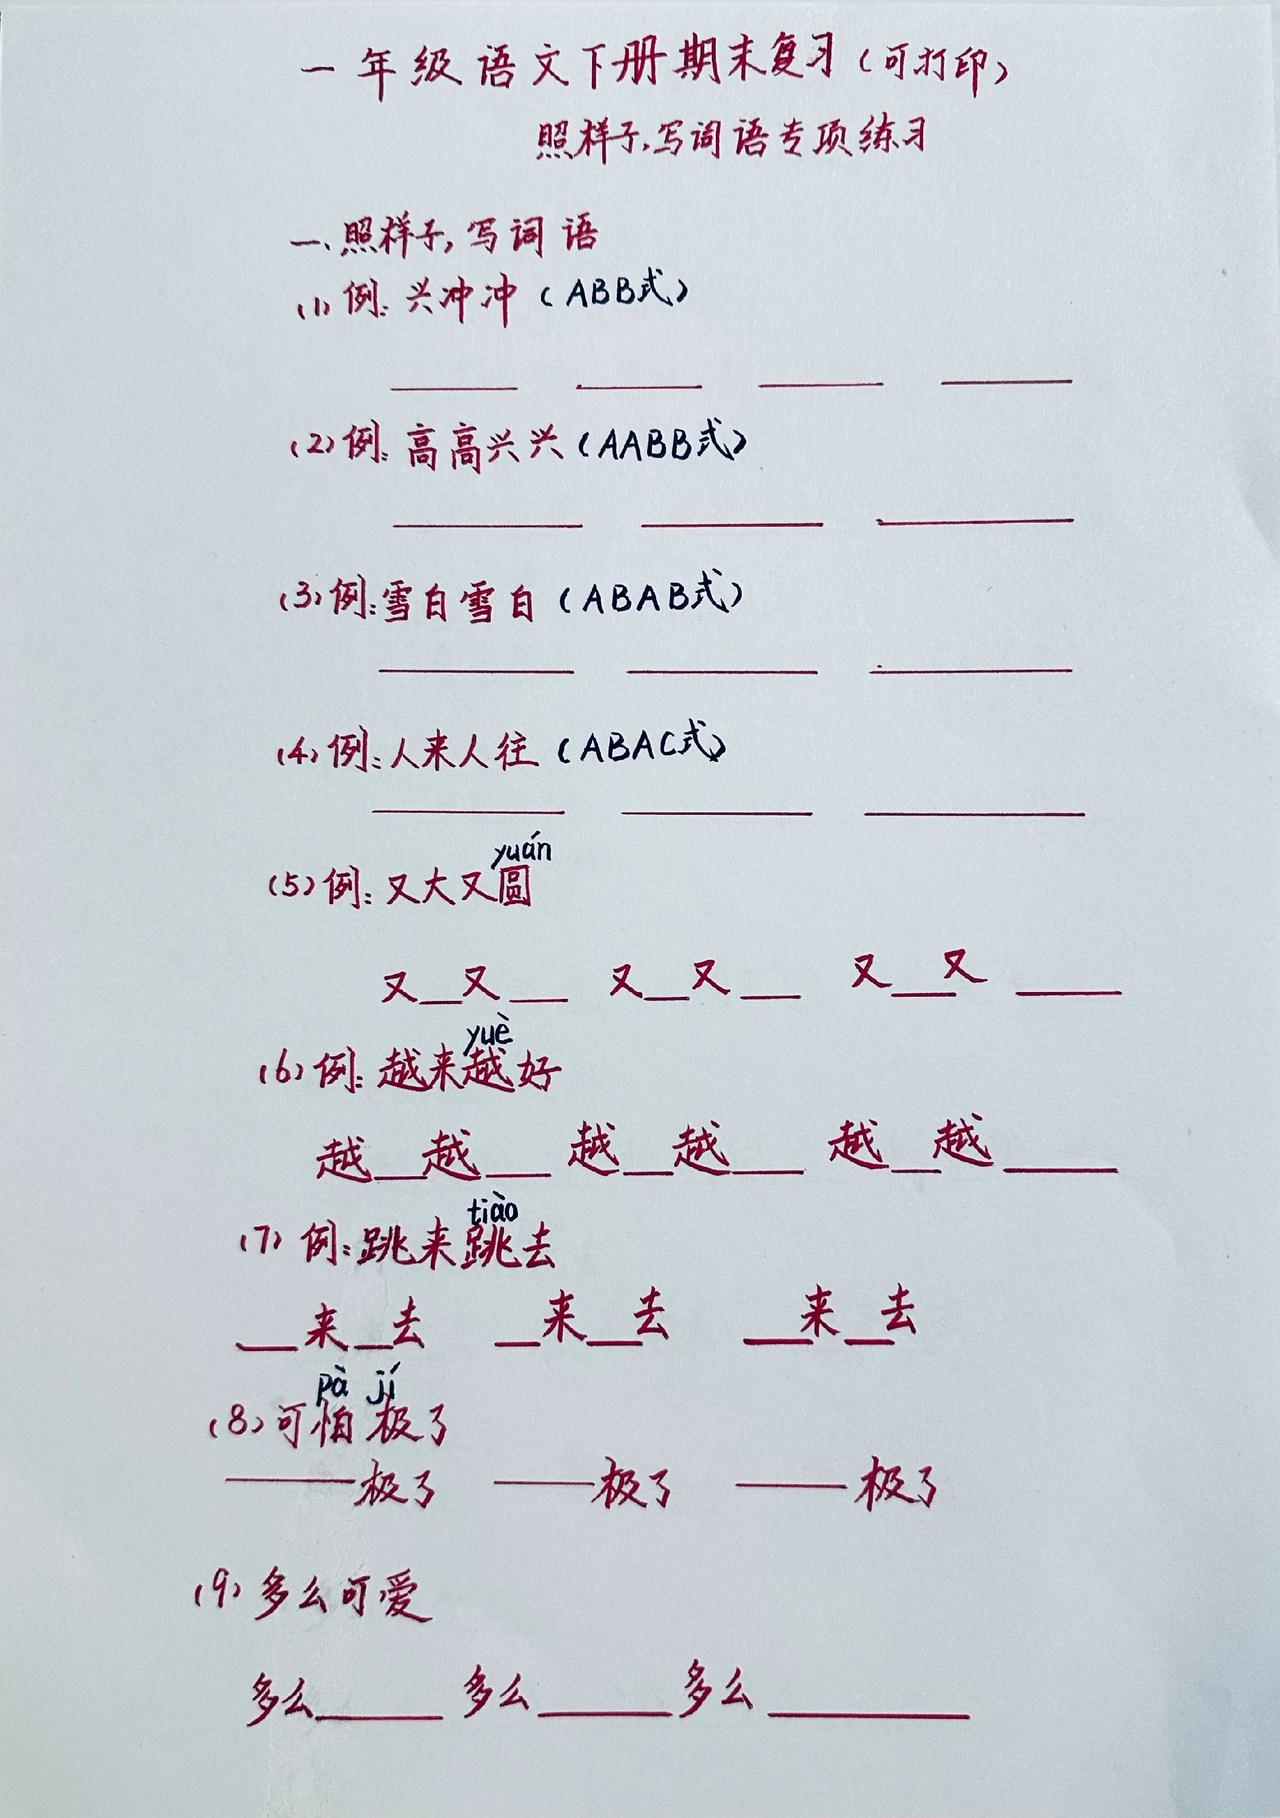 一年级语文下册期末复习(可打印)
照样子,写词语专项练习
一、照样子,写词语
(1)例:兴冲冲(ABB式)
____ ____ ____ ____
(2)例:高高兴兴(AABB式)
____ ____ ____
(3)例:雪白雪白(ABAB式)
____ ____ ____
(4)例:人来人往(ABAC式)
____ ____ ____
yuán
(5)例:又大又圆
又__又__ 又__又__ 又__又____
yuè
(6)例:越来越好
越__越__ 越__越__ 越__越____
tiào
(7)例:跳来跳去
__来__去 __来__去 __来__去
pà jí
(8)可怕极了
____极了 ____极了 ____极了
(9)多么可爱
多么____ 多么____ 多么____